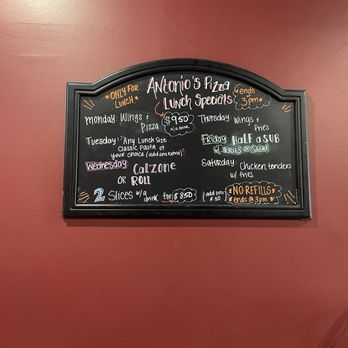 *ONLY FOR LUNCH*
Antonio's Pizza
Lunch Specials
ends 3pm
Monday: Wings & Pizza
$9.50
w/ a drink
Tuesday: Any Lunch Size
Classic Pasta of
your choice (add ons extra)
Wednesday: Calzone
OR Roll
2 Slices w/ a drink for $8.50
(add ons $.50
Thursday: Wings & Fries
Friday: Half a SUB
w/ Fries or Salad
Saturday: Chicken tenders
w/ fries
NO REFILLS
ends @ 3pm